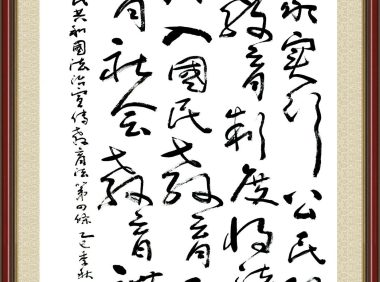 家实行公民
教育制度将法
入國民教育
育社会教育
民共和國法治宣传教育法第四条乙巳季秋